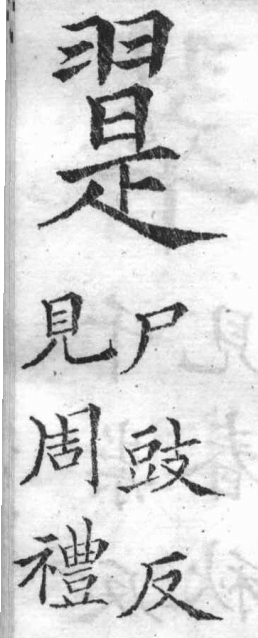 翨
尸豉反
見周禮